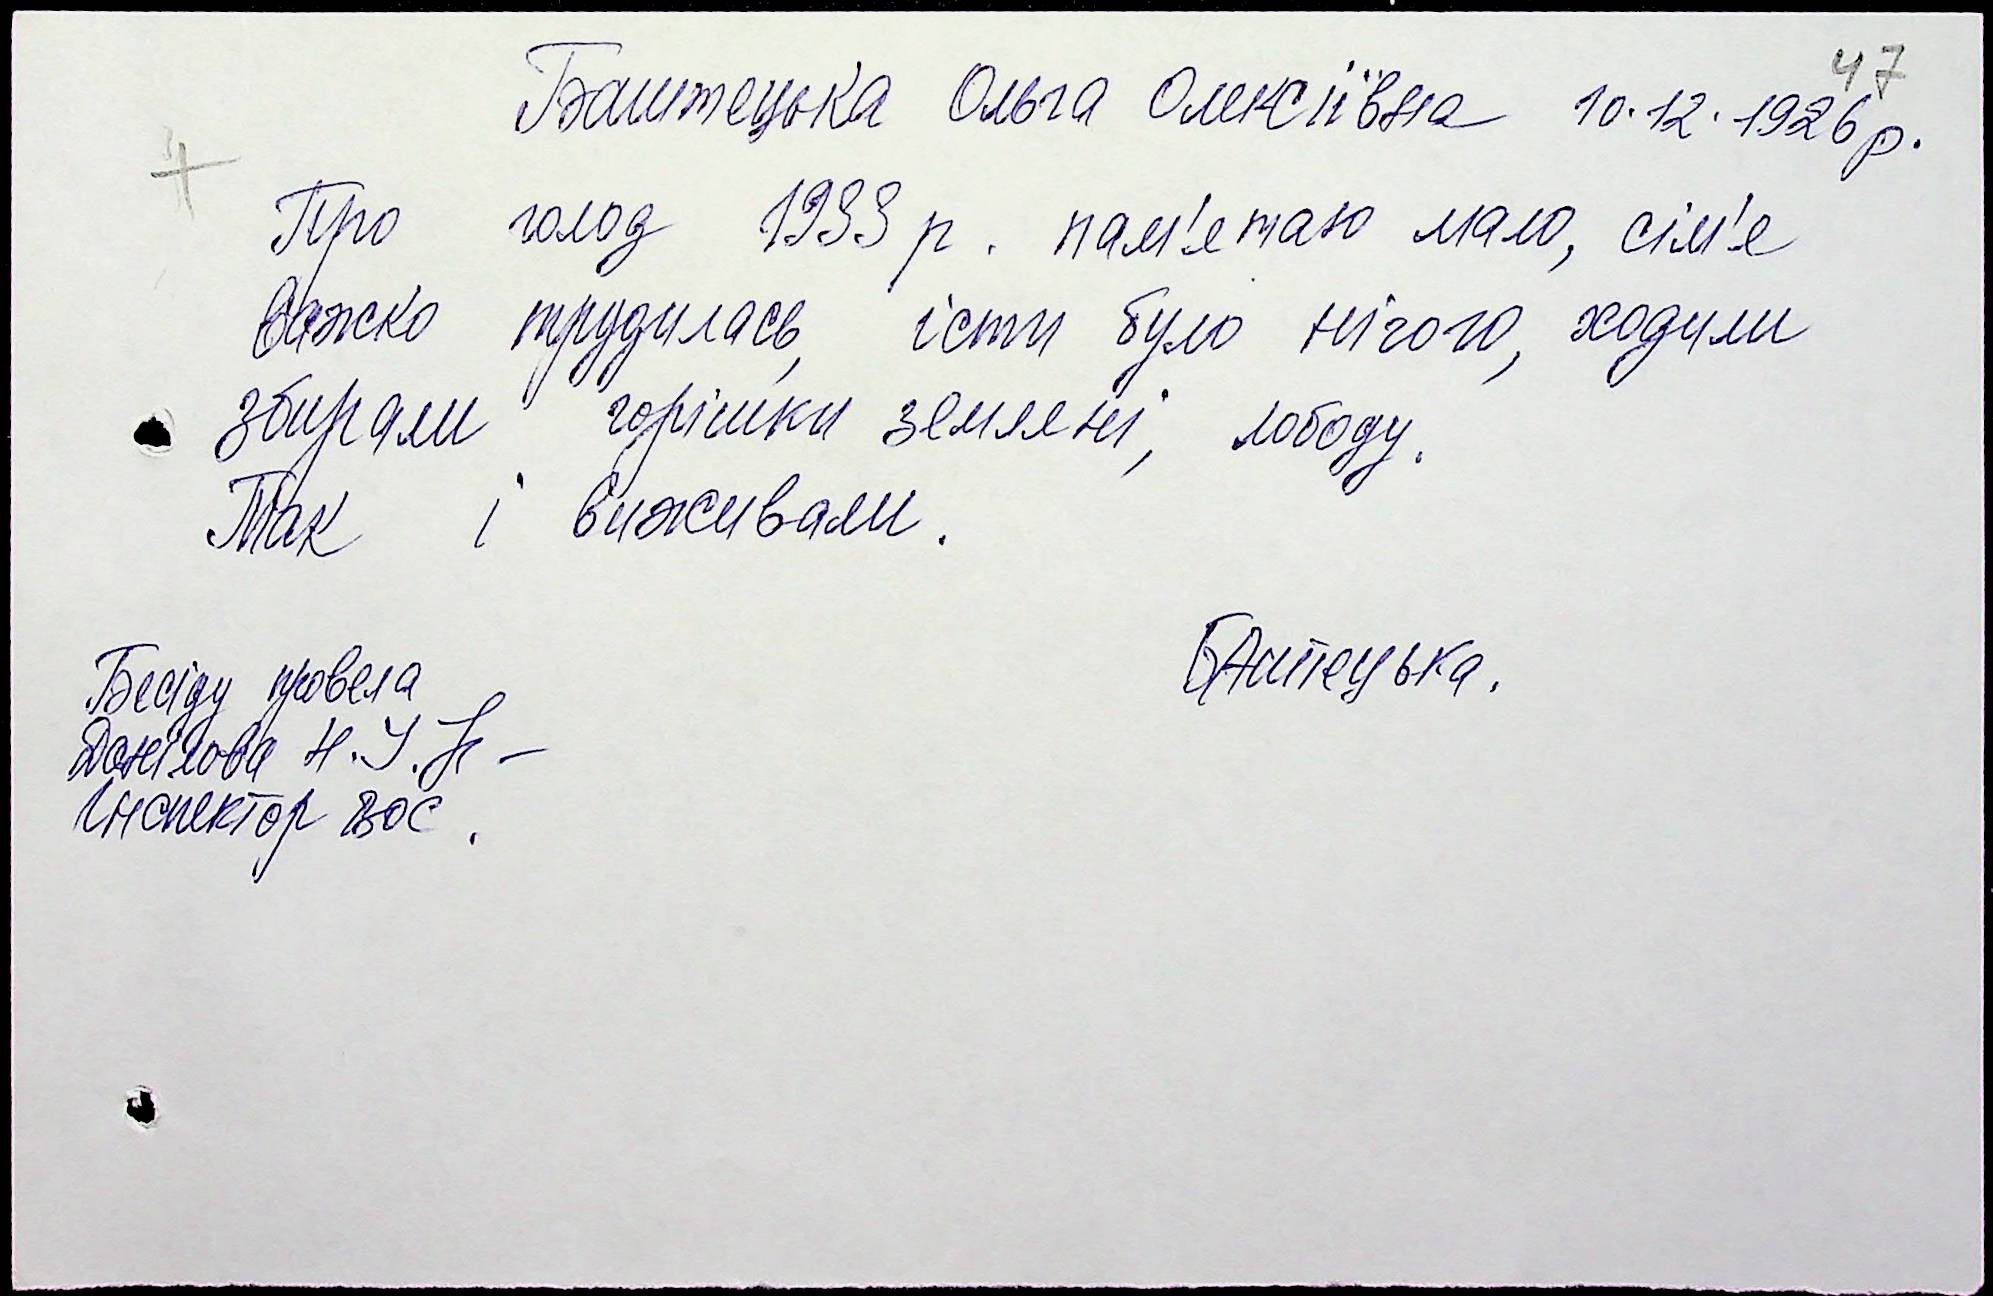 47
Баштецька Ольга Олексіївна 10.12.1926 р.
Про голод 1933 р. пам'ятаю мало, сім'я
важко трудилась, їсти було нічого, ходили
збирали горішки земляні, лободу.
Так і виживали.
Баштецька.
Бесіду провела
Данілова Н.У.
Інспектор ВОС.